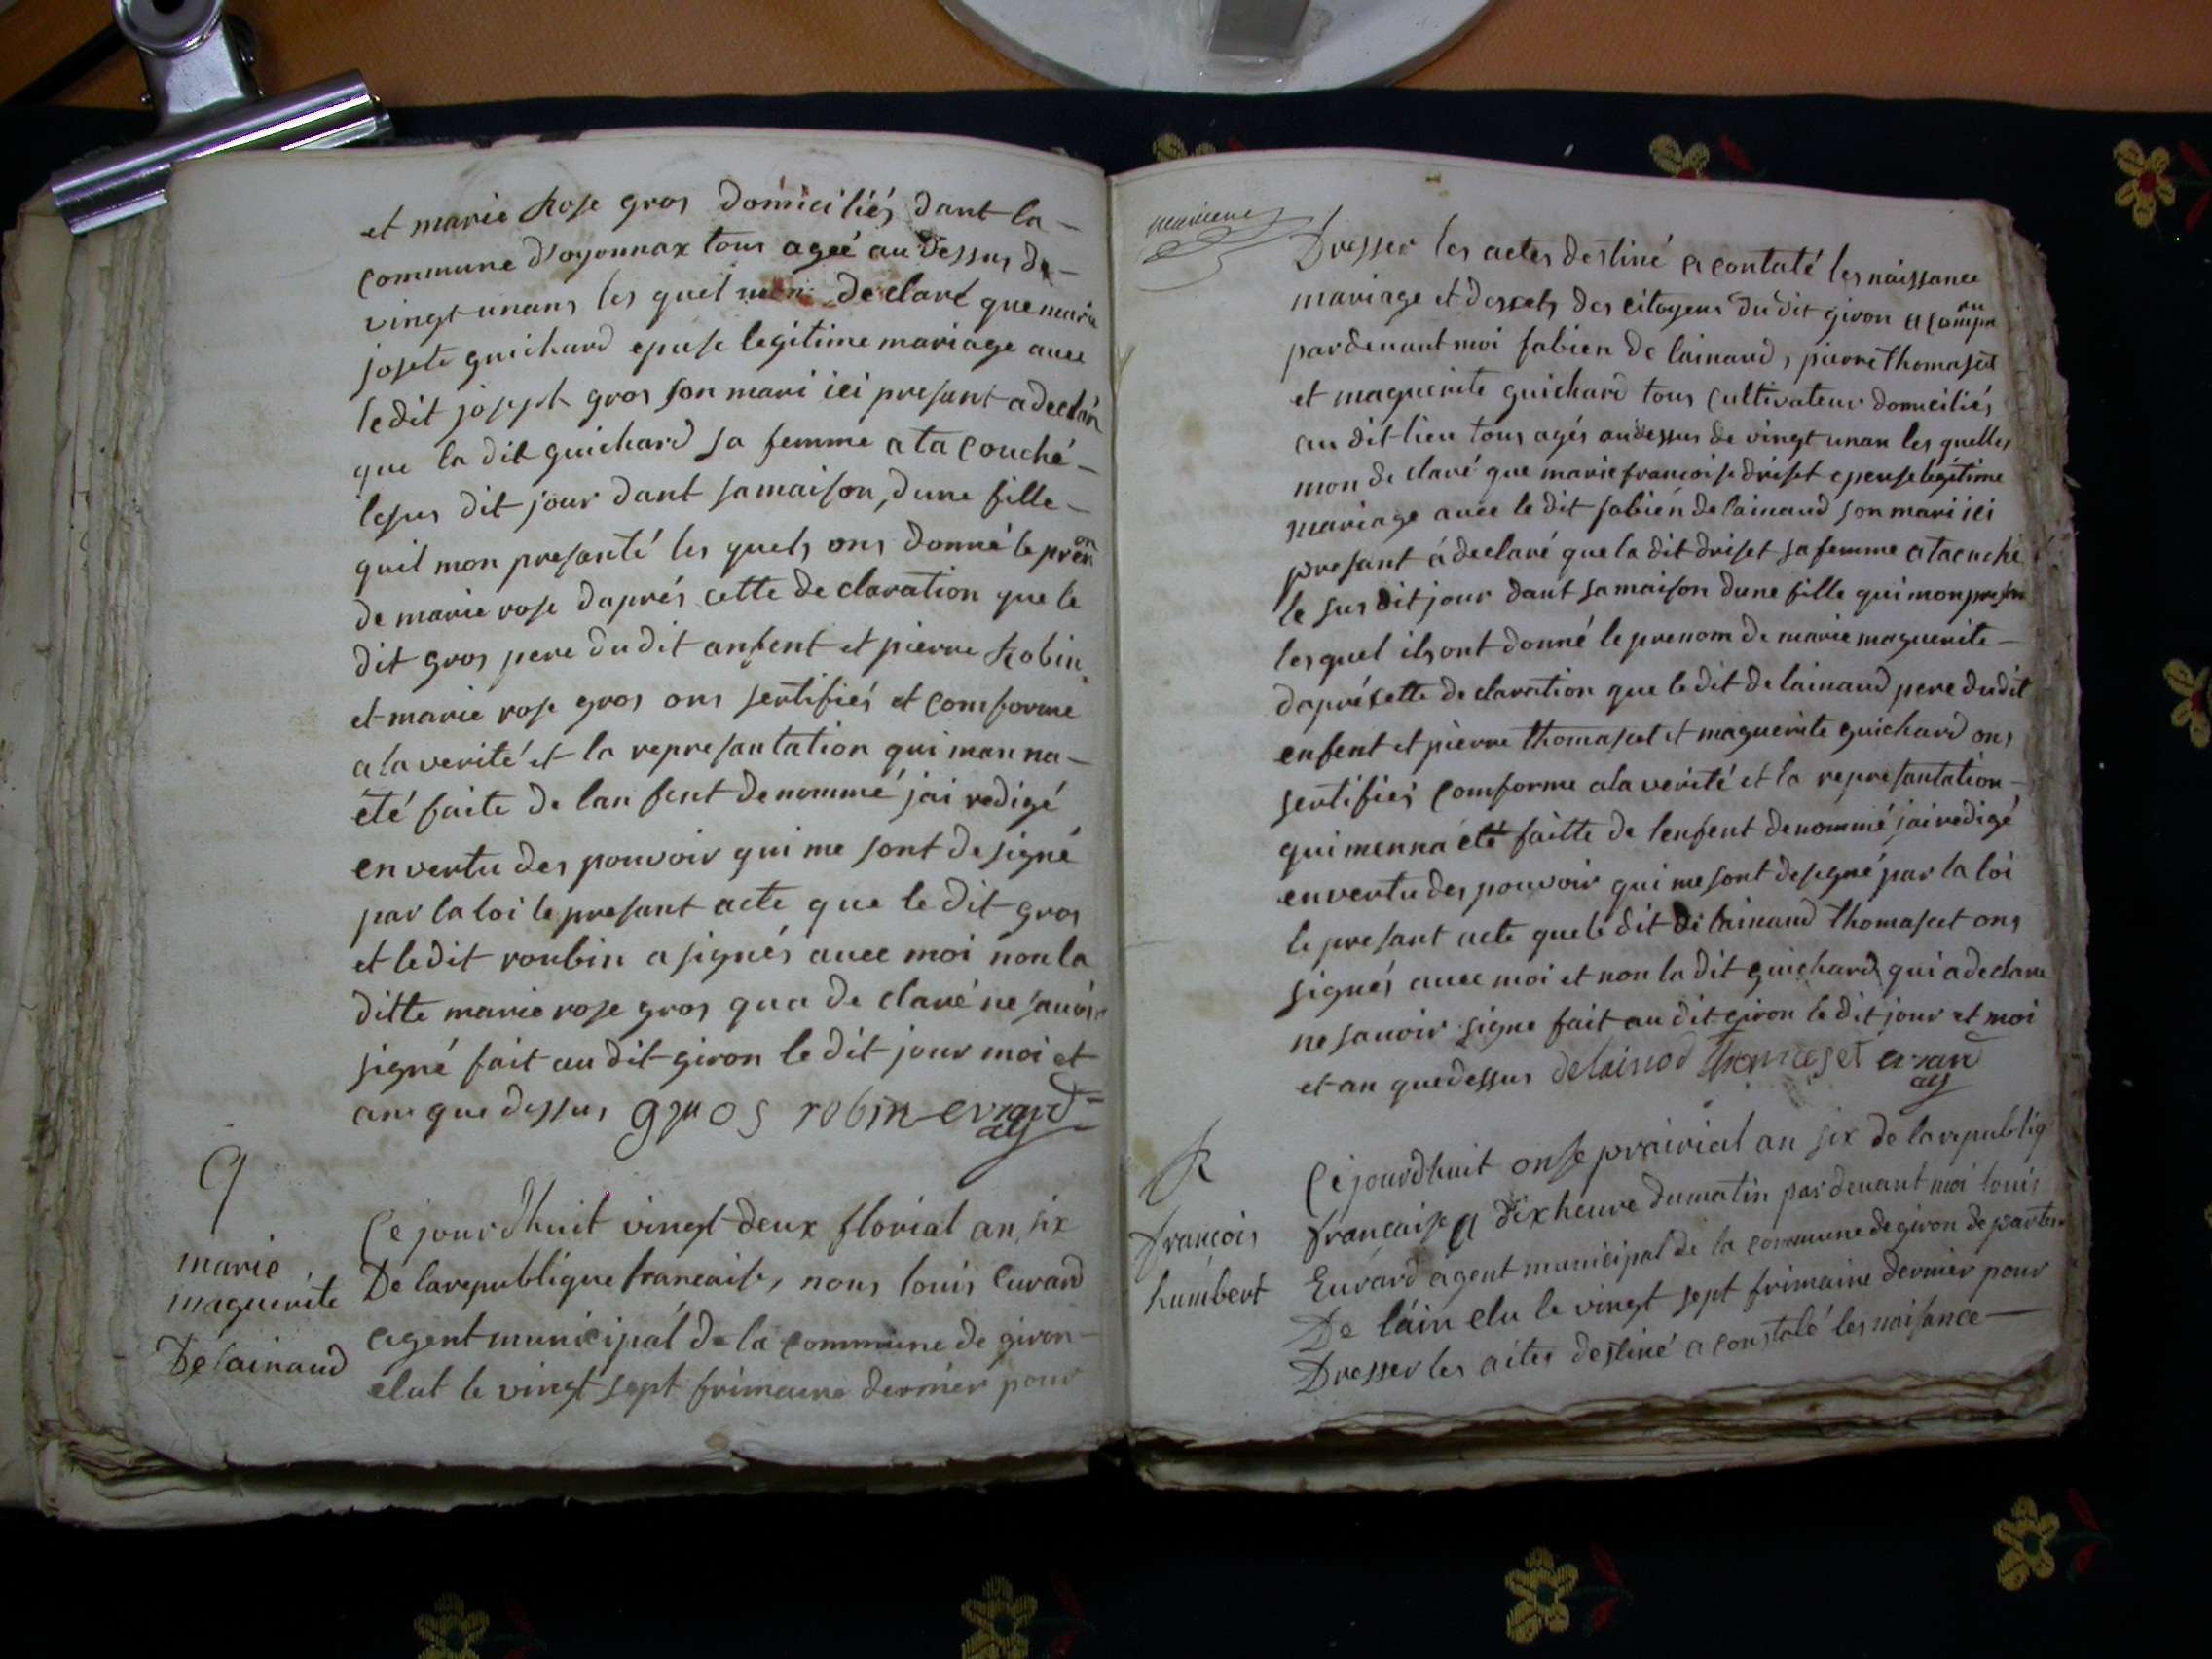 et marie Rose gros domiciliés dant la -
commune d'oyonnax tous ageé au dessus de -
vingt unans les quel mon declaré que marie
josete guichard epuse legitime mariage avec
ledit joseph gros son mari ici presant a declaré
que la dit guichard sa femme a ta couché -
lesus dit jour dant samaison, dune fille -
quil mon presanté les quels ons donné le prenom
de marie rose daprés cette declaration que le
dit gros pere du dit anfent et pierre Robin
et marie rose gros ons sertifiés et comforme
a la verité et la represantation qui man na -
été faite de lan fent denommé jai redigé
en vertu des pouvoir qui me sont designé
par la loi le presant acte que le dit gros
et ledit roubin a signés avec moi non la
ditte marie rose gros qua de claré ne savoir
signé fait au dit giron le dit jour moi et
an que dessus gros robin evrard
ag
9
marie
maguerite
Delainaud
Ce jourdhuit vingt deux florial an six
De la republique francaise, nous louis Evrard
agent municipal de la commune de giron -
elut le vingt sept frimaire dernier pour
Dresser les actes destiné a contaté les naissance
mariage et desses des citoyens du dit giron a compu
ru
pardevant moi fabien de lainaud, pierre thomaset
et maguerite guichard tous cultivateur domiciliés
au dit lieu tous agés audessus de vingt unan les quelles
mon de claré que marie francoise driset epeuse legitime
mariage avec le dit fabien delainaud son mari ici
presant a declaré que la dit driset sa femme a tacuché
le sus dit jour dant samaison dune fille qui mon presan
les quel ils ont donné le prenom de marie maguerite -
daprés sette declaration que le dit delainaud pere dudit
enfent et pierre thomaset et maguerite guichard ons
sertifiés comforme ala verité et la represantation -
qui menna été faitte de lenfent denommé jai redigé
envertu des pouvoir qui me sont designé par la loi
le presant acte que le dit de lainaud thomaset ons
signés avec moi et non la dit guichard qui a declare
ne savoir signe fait au dit giron le dit jour et moi
et an que dessus delainod Thomaset evrard
ag
R
francois
humbert
Ce jourdhuit onse prairial an six de la republiq
francaise a dix heure dumatin par devant moi louis
Evrard agent municipal de la commune de giron departem
De lain elu le vingt sept frimaire dernier pour
Dresser les actes destiné a constaté les naisance -